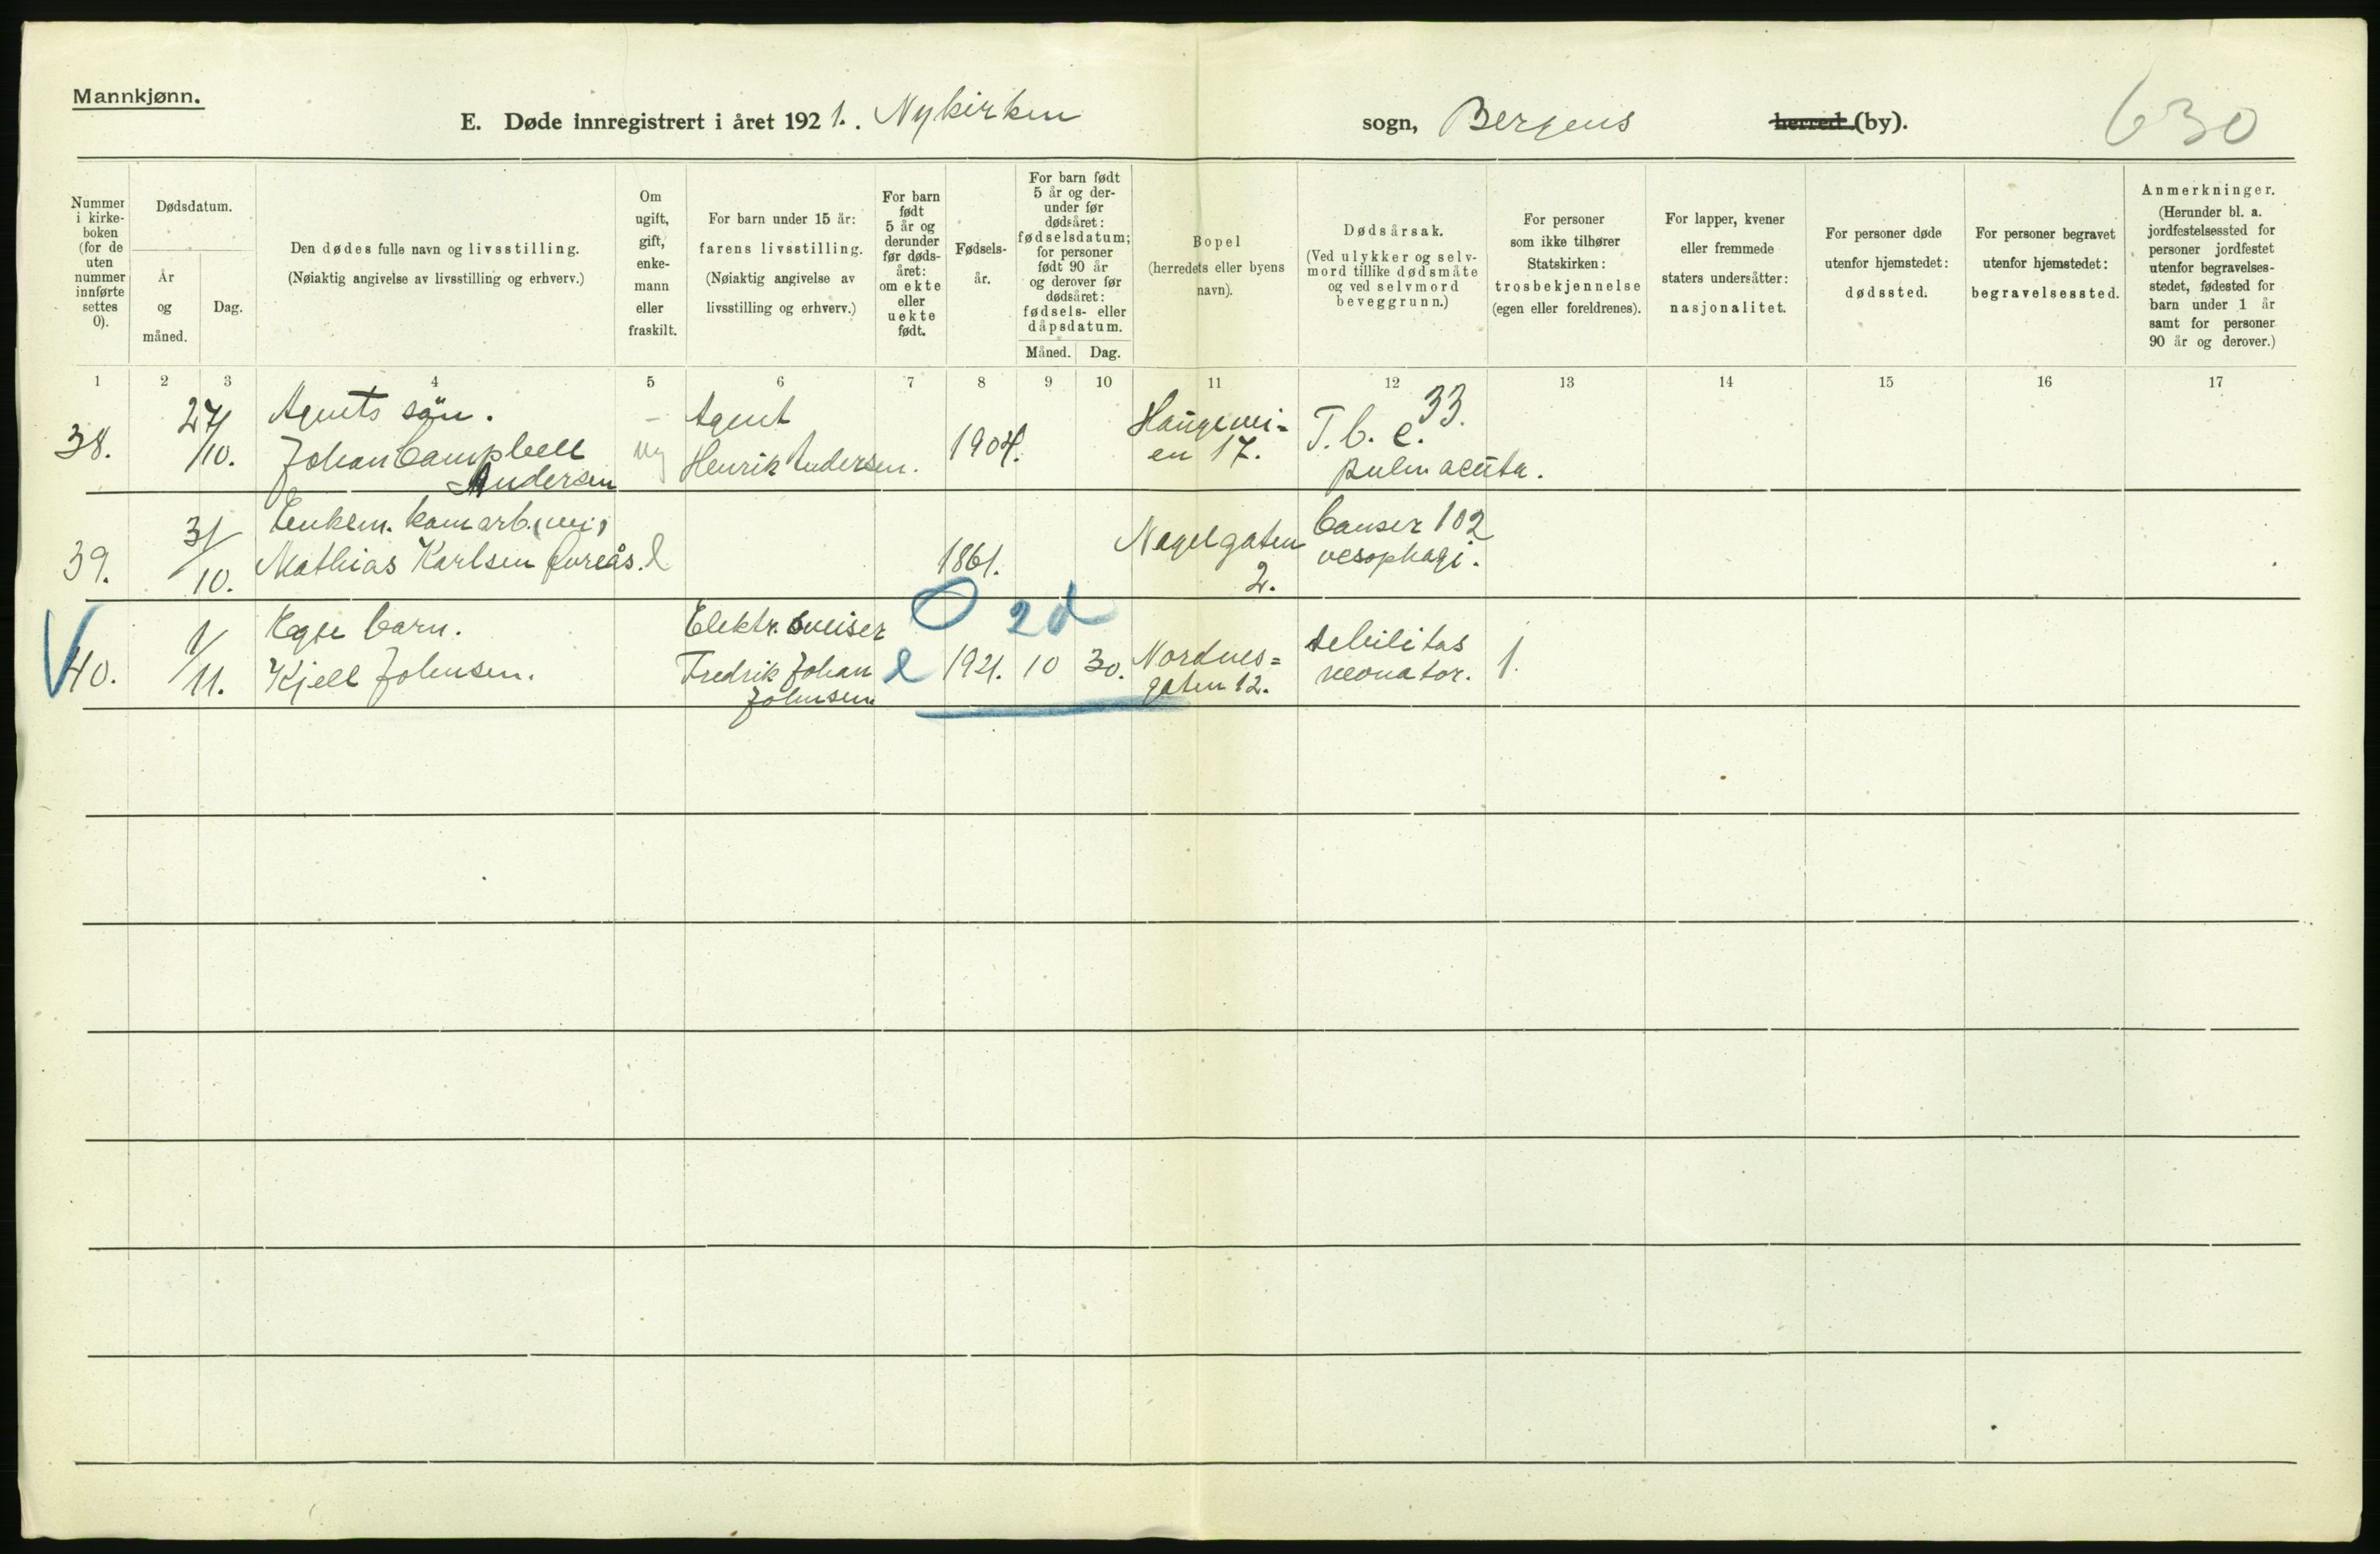 Mannkjønn.
E. Døde innregistrert i året 1921. Nykirken sogn, Bergens herred (by).
630
Nummer i kirke-boken (for de uten nummer innførte settes 0).
Dødsdatum.
År og måned.
Dag.
Den dødes fulle navn og livsstilling.
(Nøiaktig angivelse av livsstilling og erhverv.)
Om ugift, gift, enke-mann eller fraskilt.
For barn under 15 år:
farens livsstilling.
(Nøiaktig angivelse av
livsstilling og erhverv.)
For barn født 5 år og derunder før døds-året: om ekte eller uekte født.
Fødsels-år.
For barn født 5 år og der-under før dødsåret: fødselsdatum; for personer født 90 år og derover før dødsåret: fødsels- eller dåpsdatum.
Måned. Dag.
Bopel
(herredets eller byens navn).
Dødsårsak.
(Ved ulykker og selv-mord tillike dødsmåte og ved selvmord beveggrunn.)
For personer som ikke tilhører Statskirken:
trosbekjennelse
(egen eller foreldrenes).
For lapper, kvener
eller fremmede
staters undersåtter:
nasjonalitet.
For personer døde
utenfor hjemstedet:
dødssted.
For personer begravet
utenfor hjemstedet:
begravelsessted.
Anmerkninger.
(Herunder bl. a. jordfestelsessted for personer jordfestet utenfor begravelses-stedet, fødested for barn under 1 år samt for personer 90 år og derover.)
1 2 3 4 5 6 7 8 9 10 11 12 13 14 15 16 17
38.
27/10.
Agents sön.
Johan Campbell
Andersen
—
ug
Agent
Henrik Andersen.
1904.
Haugevei=
en 17.
33.
T.b.c.
pulm acuta.
39.
31/10.
Enkem. kom arb.
Mathias Karlsen
1861.
Nagelgaten
2.
Cancer 102
oesophagi.
40.
1/11.
Kgse barn.
Kjell Johnsen.
Elektr. sveiser
Fredrik Johan
Johnsen
e
O 2d
1921. 10 30.
Nordnes=
gaten 12.
debilitas
neonator.
1.